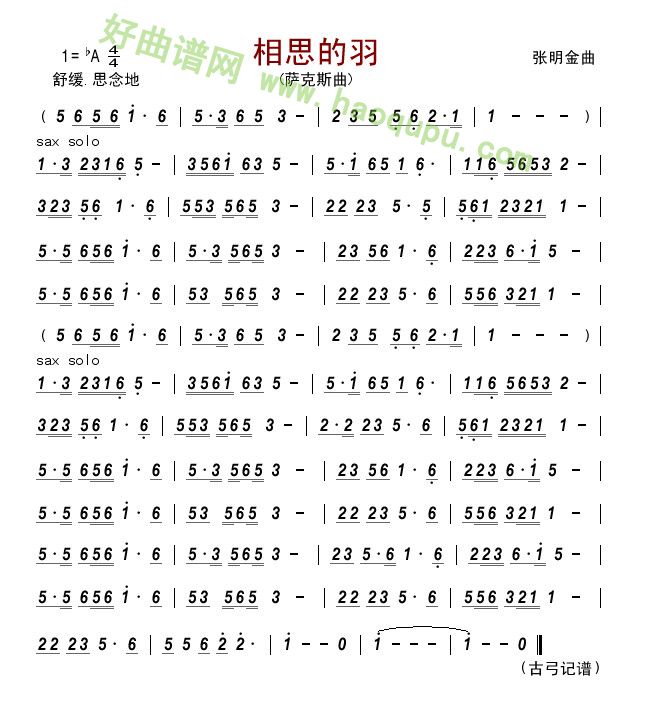 好曲谱网
www.haoqupu.com
相思的羽
1=♭A 4/4
张明金曲
舒缓.思念地
(萨克斯曲)
( 5 6 5 6 1· 6 | 5·3 6 5 3 - | 2 3 5 5 6 2·1 | 1 - - - ) |
sax solo
1·3 2316 5 - | 3561 63 5 - | 5·1 65 1 6· | 116 5653 2 - |
323 56 1· 6 | 553 565 3 - | 22 23 5· 5 | 561 2321 1 - |
5·5 656 1· 6 | 5·3 565 3 - | 23 56 1· 6 | 223 6·1 5 - |
5·5 656 1· 6 | 53 565 3 - | 22 23 5· 6 | 556 321 1 - |
( 5 6 5 6 1· 6 | 5·3 6 5 3 - | 2 3 5 5 6 2·1 | 1 - - - ) |
sax solo
1·3 2316 5 - | 3561 63 5 - | 5·1 65 1 6· | 116 5653 2 - |
323 56 1· 6 | 553 565 3 - | 2·2 23 5· 6 | 561 2321 1 - |
5·5 656 1· 6 | 5·3 565 3 - | 23 56 1· 6 | 223 6·1 5 - |
5·5 656 1· 6 | 53 565 3 - | 22 23 5· 6 | 556 321 1 - |
5·5 656 1· 6 | 5·3 565 3 - | 23 5·6 1· 6 | 223 6·1 5 - |
5·5 656 1· 6 | 53 565 3 - | 22 23 5· 6 | 556 321 1 - |
22 23 5· 6 | 5 5 6 2 2· | 1 - - 0 | 1 - - - | 1 - - 0 ‖
(古弓记谱)